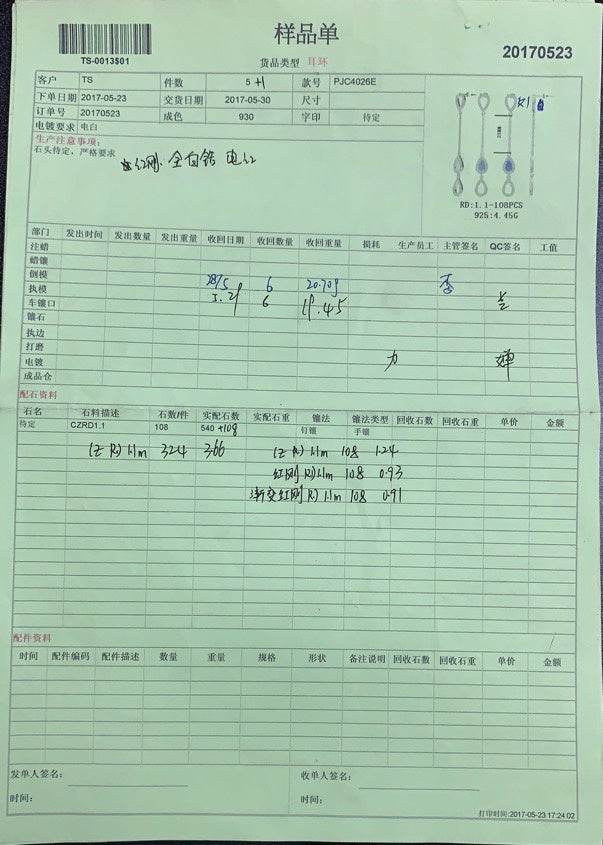 样品单
TS-0013501
货品类型 耳环
20170523
客户 TS 件数 5 +1 款号 PJC4026E
下单日期 2017-05-23 交货日期 2017-05-30 尺寸
订单号 20170523 成色 930 字印 待定
电镀要求 电白
生产注意事项:
石头待定,严格要求
红刚. 全白锆 电红
RD:1.1-108PCS
925:4.45G
部门 发出时间 发出数量 发出重量 收回日期 收回数量 收回重量 损耗 生产员工 主管签名 QC签名 工值
注蜡
蜡镶
倒模 28/5 6 20.70g 李
执模 5.29 6 19.45
车镶口
镶石
执边
打磨
电镀
成品仓
配石资料
石名 石料描述 石数/件 实配石数 实配石重 镶法 镶法类型 回收石数 回收石重 单价 金额
待定 CZRD1.1 108 540 +108 钉镶 手镶
CZ RD 1.1m 324 3.66 CZ RD 1.1m 108 1.24
红刚 RD 1.1m 108 0.93
渐变红刚 RD 1.1m 108 0.91
配件资料
时间 配件编码 配件描述 数量 重量 规格 形状 备注说明 回收石数 回收石重 单价 金额
发单人签名: 收单人签名:
时间: 时间:
打印时间:2017-05-23 17:24:02